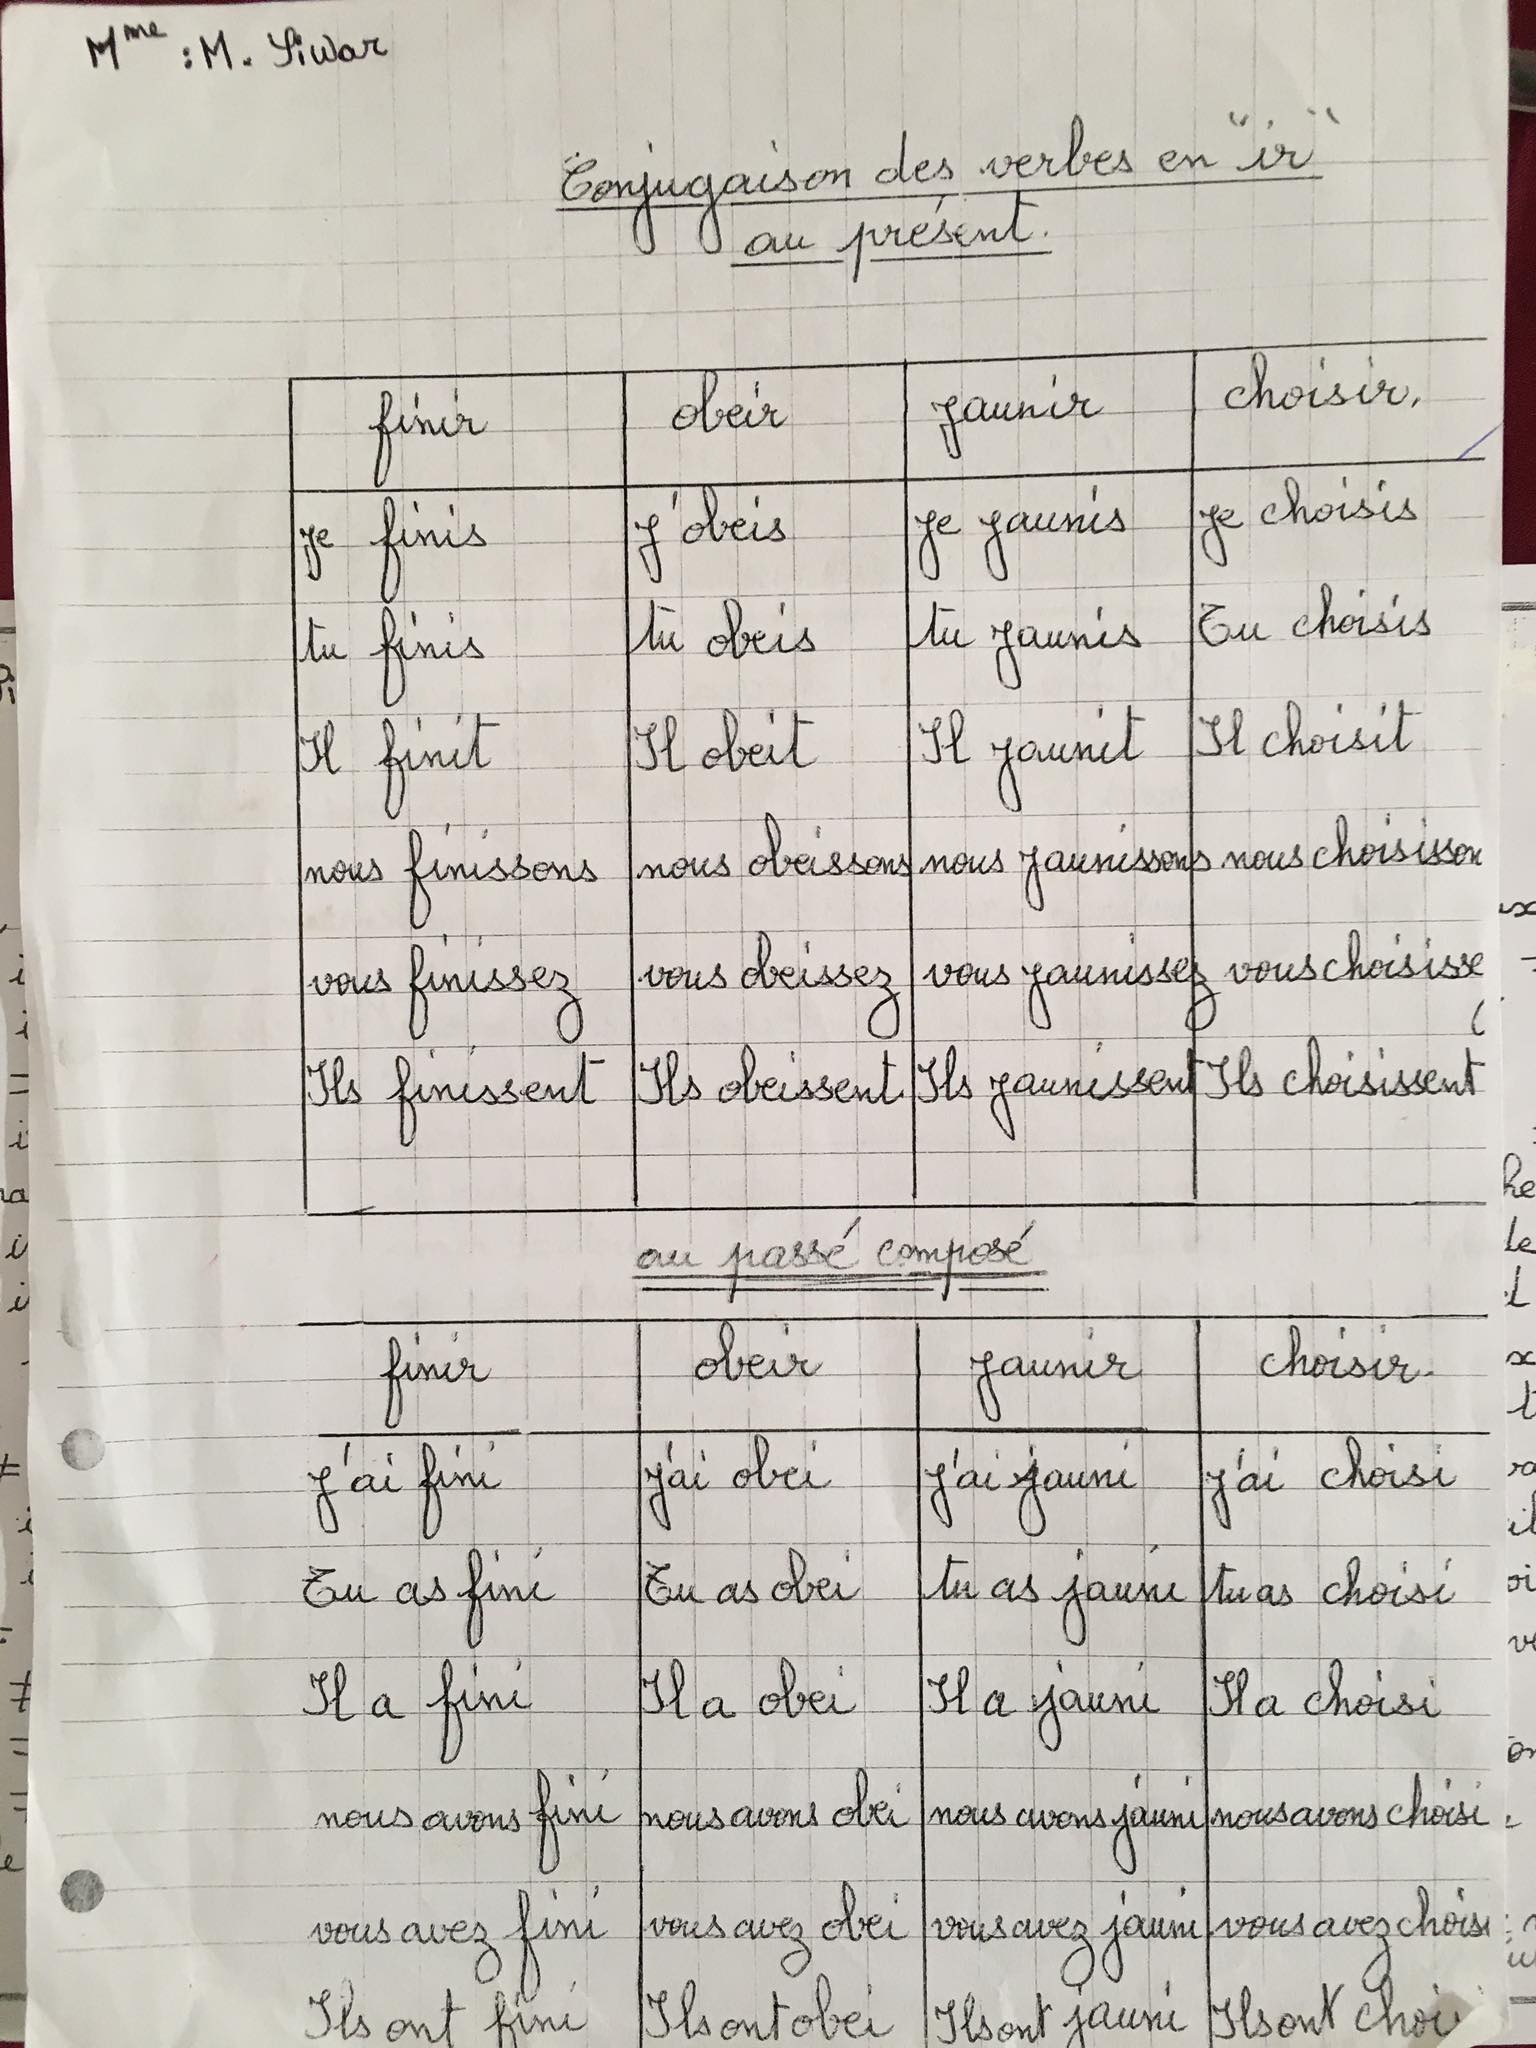 Mme : M. Siwar
Conjugaison des verbes en "ir"
au présent.
finir obeir jaunir choisir.
je finis j'obeis je jaunis je choisis
tu finis tu obeis tu jaunis Tu choisis
Il finit Il obeit Il jaunit Il choisit
nous finissons nous obeissons nous jaunissons nous choisisson
vous finissez vous obeissez vous jaunissez vous choisisse
Ils finissent Ils obeissent Ils jaunissent Ils choisissent
au passé composé
finir obeir jaunir choisir.
j'ai fini j'ai obei j'ai jauni j'ai choisi
Tu as fini Tu as obei tu as jauni tu as choisi
Il a fini Il a obei Il a jauni Il a choisi
nous avons fini nous avons obei nous avons jauni nous avons choisi
vous avez fini vous avez obei vous avez jauni vous avez choisi
Ils ont fini Ils ont obei Ils ont jauni Ils ont choi